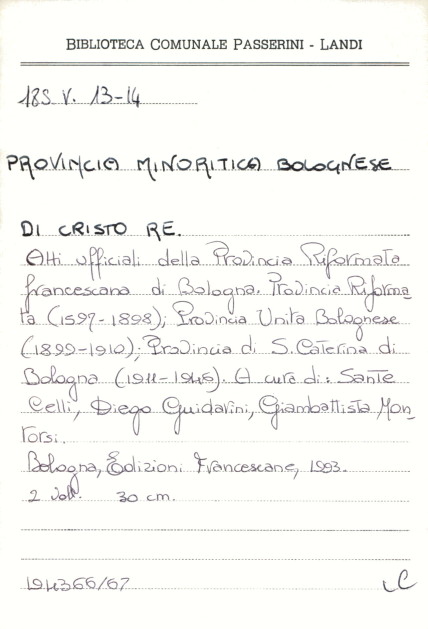 BIBLIOTECA COMUNALE PASSERINI - LANDI
18S. V. 13-14
PROVINCIA MINORITICA BOLOGNESE
DI CRISTO RE.
Atti ufficiali della Provincia Riformata
francescana di Bologna. Provincia Riforma-
ta (1597-1898); Provincia Unita Bolognese
(1899-1910); Provincia di S. Caterina di
Bologna (1911-1945). A cura di: Sante
Celli, Diego Guidarini, Giambattista Mon-
torsi.
Bologna, Edizioni Francescane, 1993.
2 Voll. 30 cm.
194366/67